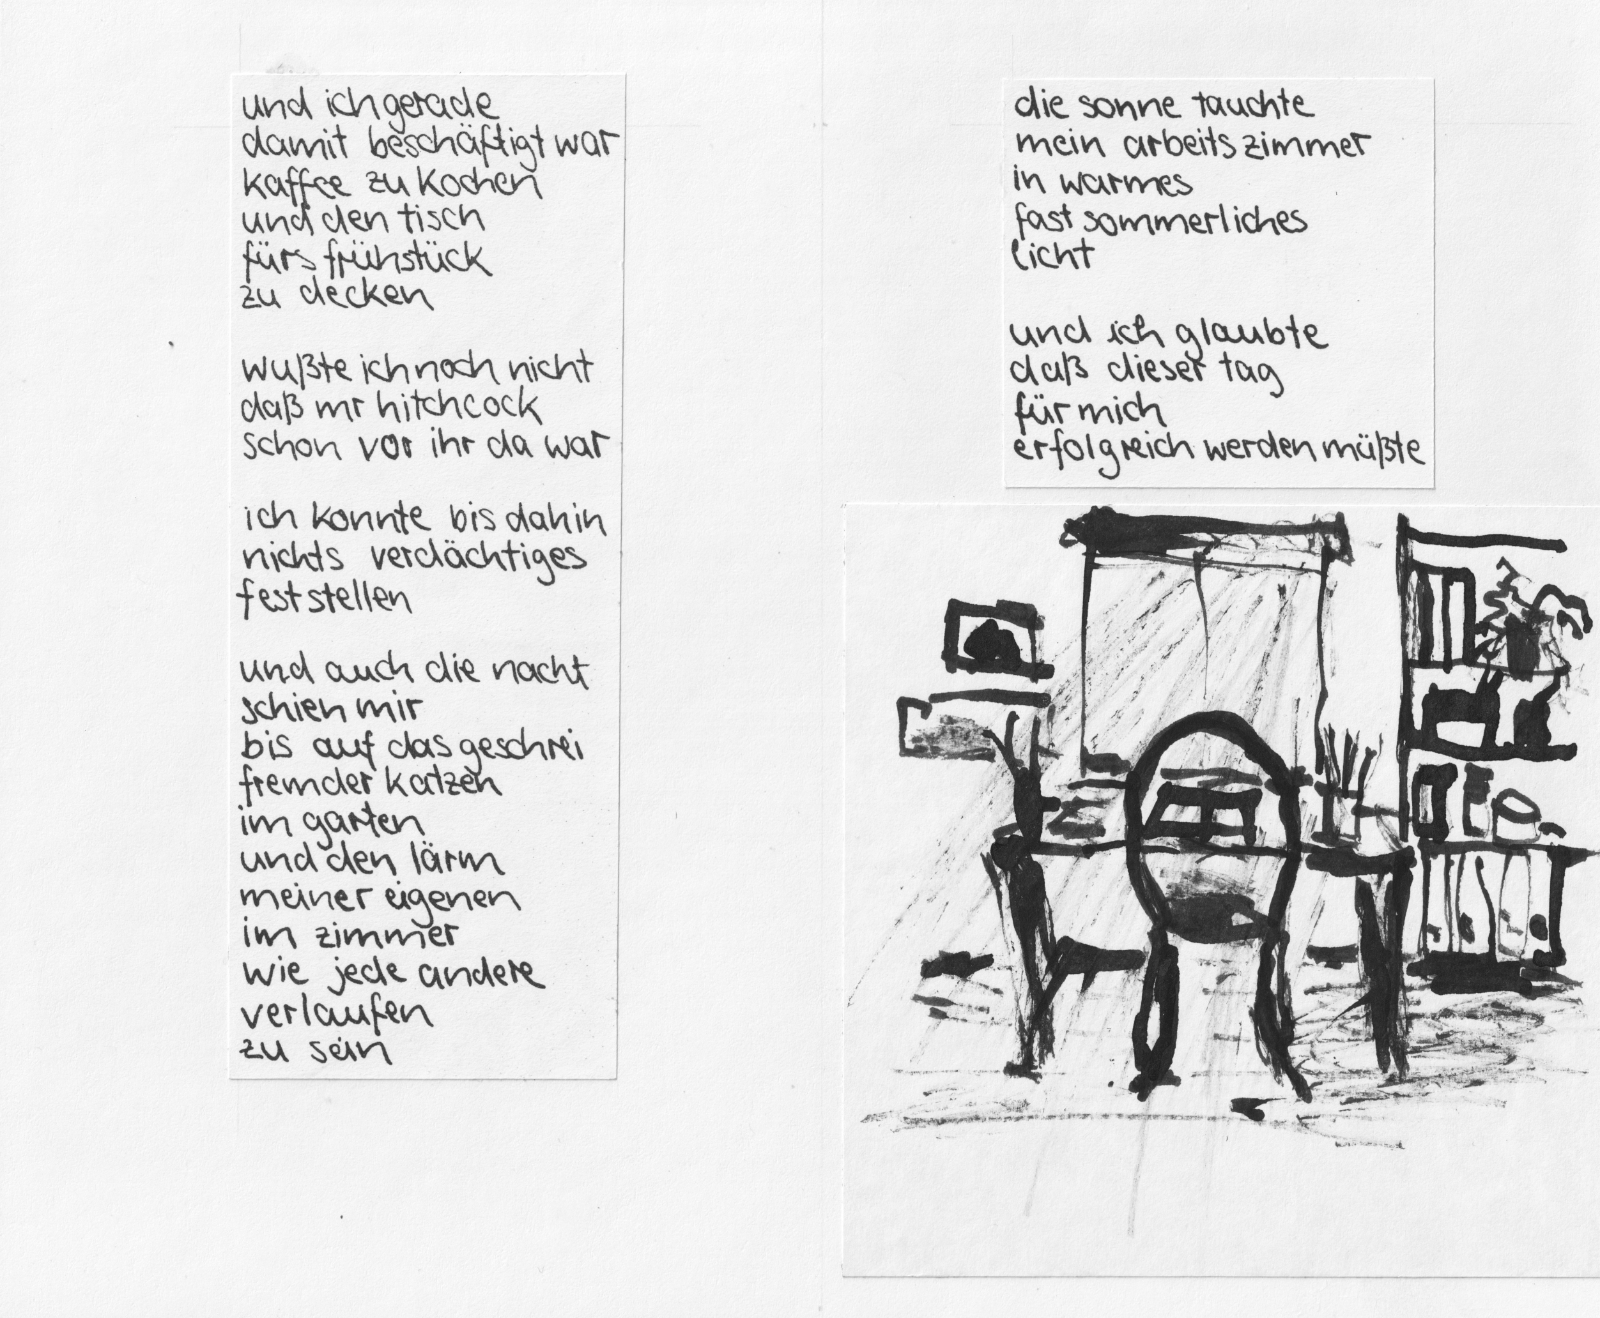 und ich gerade
damit beschäftigt war
kaffee zu kochen
und den tisch
fürs frühstück
zu decken

wußte ich noch nicht
daß mr hitchcock
schon vor ihr da war

ich konnte bis dahin
nichts verdächtiges
feststellen

und auch die nacht
schien mir
bis auf das geschrei
fremder katzen
im garten
und den lärm
meiner eigenen
im zimmer
wie jede andere
verlaufen
zu sein

die sonne tauchte
mein arbeitszimmer
in warmes
fast sommerliches
licht

und ich glaubte
daß dieser tag
für mich
erfolgreich werden müßte